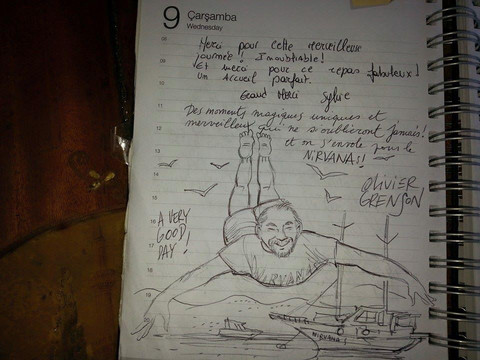 9 Çarşamba
Wednesday
Merci pour cette merveilleuse
journée! Inoubliable!
Et merci pour ce repas fabuleux!
Un Accueil parfait.
Grand Merci Sylvie
Des moments magiques uniques et
merveilleux qui ne s'oublieront jamais!
et on s'envole pour le
NIRVANA!!
OLIVIER
GRENSON
A VERY
GOOD
DAY!
NIRVANA
NIRVANA
09
10
11
12
13
14
15
16
17
18
19